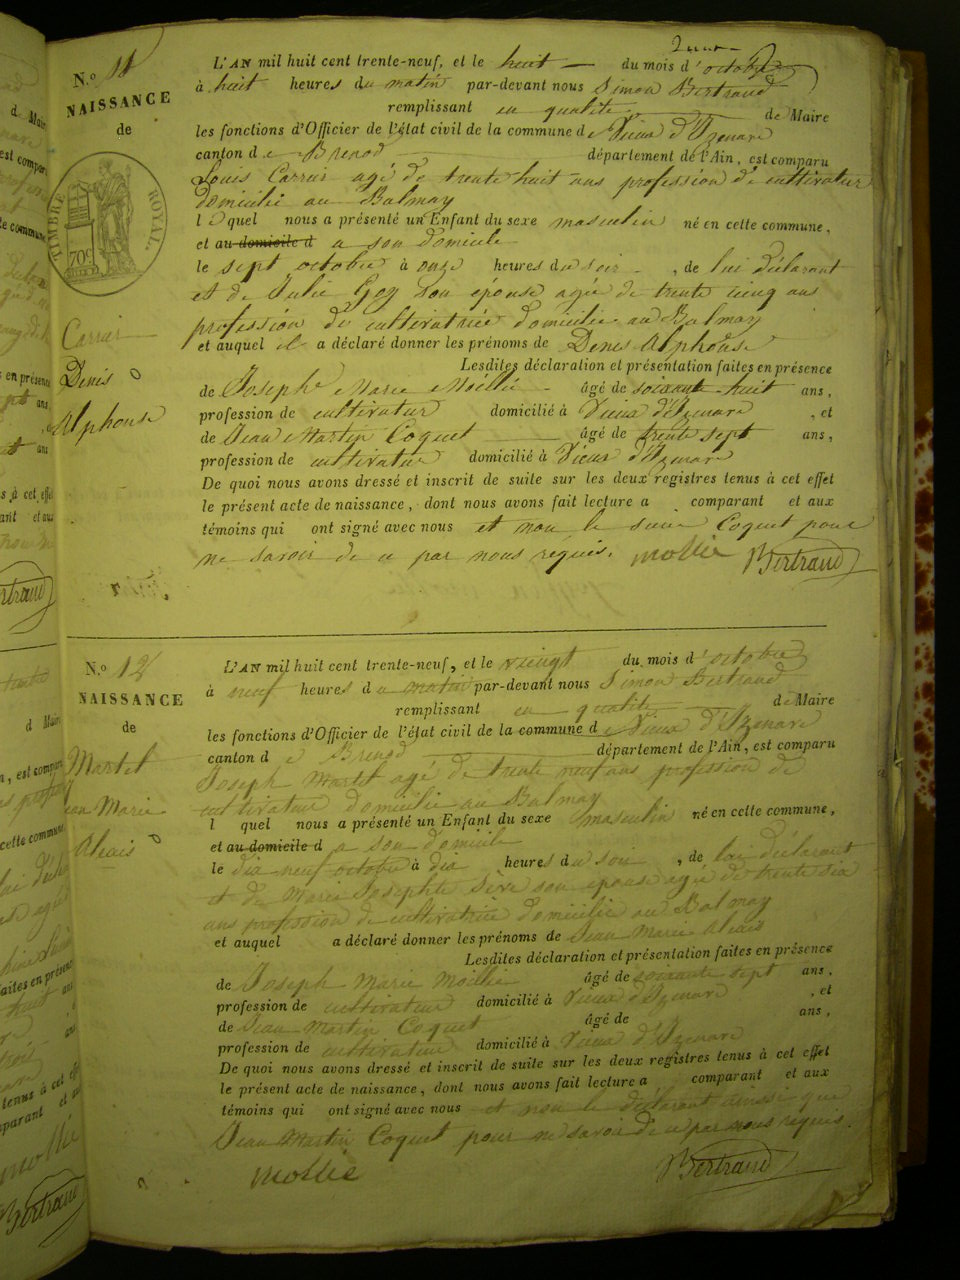 N.º 11
NAISSANCE
de
Carrier
Denis
Alphonse
TIMBRE ROYAL.
70c
L'AN mil huit cent trente-neuf, et le huit du mois d'octobre
à huit heures du matin par-devant nous Simon Bertrand
remplissant en qualité de Maire
les fonctions d'Officier de l'état civil de la commune de Vieux d'Izenave
canton de Brenod département de l'Ain, est comparu
Louis Carrier agé de trente huit ans profession de cultivateur
domicilié au Balmay
lequel nous a présenté un Enfant du sexe masculin né en cette commune,
et au domicile d a son domicile
le sept octobre à onze heures du soir, de lui déclarant
et de Julie Goy son épouse agée de trente cinq ans
profession de cultivatrice domiciliée au Balmay
et auquel il a déclaré donner les prénoms de Denis Alphonse
Lesdites déclaration et présentation faites en présence
de Joseph Marie Moëllié âgé de soixante huit ans,
profession de cultivateur domicilié à Vieux d'Izenave, et
de Jean Martin Coquet âgé de trente sept ans,
profession de cultivateur domicilié à Vieux d'Izenave
De quoi nous avons dressé et inscrit de suite sur les deux registres tenus à cet effet
le présent acte de naissance, dont nous avons fait lecture a comparant et aux
témoins qui ont signé avec nous et non le sieur Coquet pour
ne savoir de ce par nous requis. mollié Bertrand
N.º 12
NAISSANCE
de
Martel
Jean Marie
Alexis
L'AN mil huit cent trente-neuf, et le vingt du mois d'octobre
à neuf heures du matin par-devant nous Simon Bertrand
remplissant en qualité de Maire
les fonctions d'Officier de l'état civil de la commune de Vieux d'Izenave
canton de Brenod département de l'Ain, est comparu
Joseph Martel agé de trente neuf ans profession de
cultivateur domicilié au Balmay
l quel nous a présenté un Enfant du sexe masculin né en cette commune,
et au domicile d a son domicile
le dix neuf octobre à dix heures du soir, de lui déclarant
et de Marie Josephte Sève son épouse agée de trente six
ans profession de cultivatrice domiciliée au Balmay
et auquel a déclaré donner les prénoms de Jean Marie Alexis
Lesdites déclaration et présentation faites en présence
de Joseph Marie Moëllié âgé de soixante sept ans,
profession de cultivateur domicilié à Vieux d'Izenave, et
de Jean Martin Coquet âgé de ans,
profession de cultivateur domicilié à Vieux d'Izenave
De quoi nous avons dressé et inscrit de suite sur les deux registres tenus à cet effet
le présent acte de naissance, dont nous avons fait lecture a comparant et aux
témoins qui ont signé avec nous et non le déclarant ainsi que
Jean Martin Coquet pour ne savoir de ce par nous requis.
mollié Bertrand